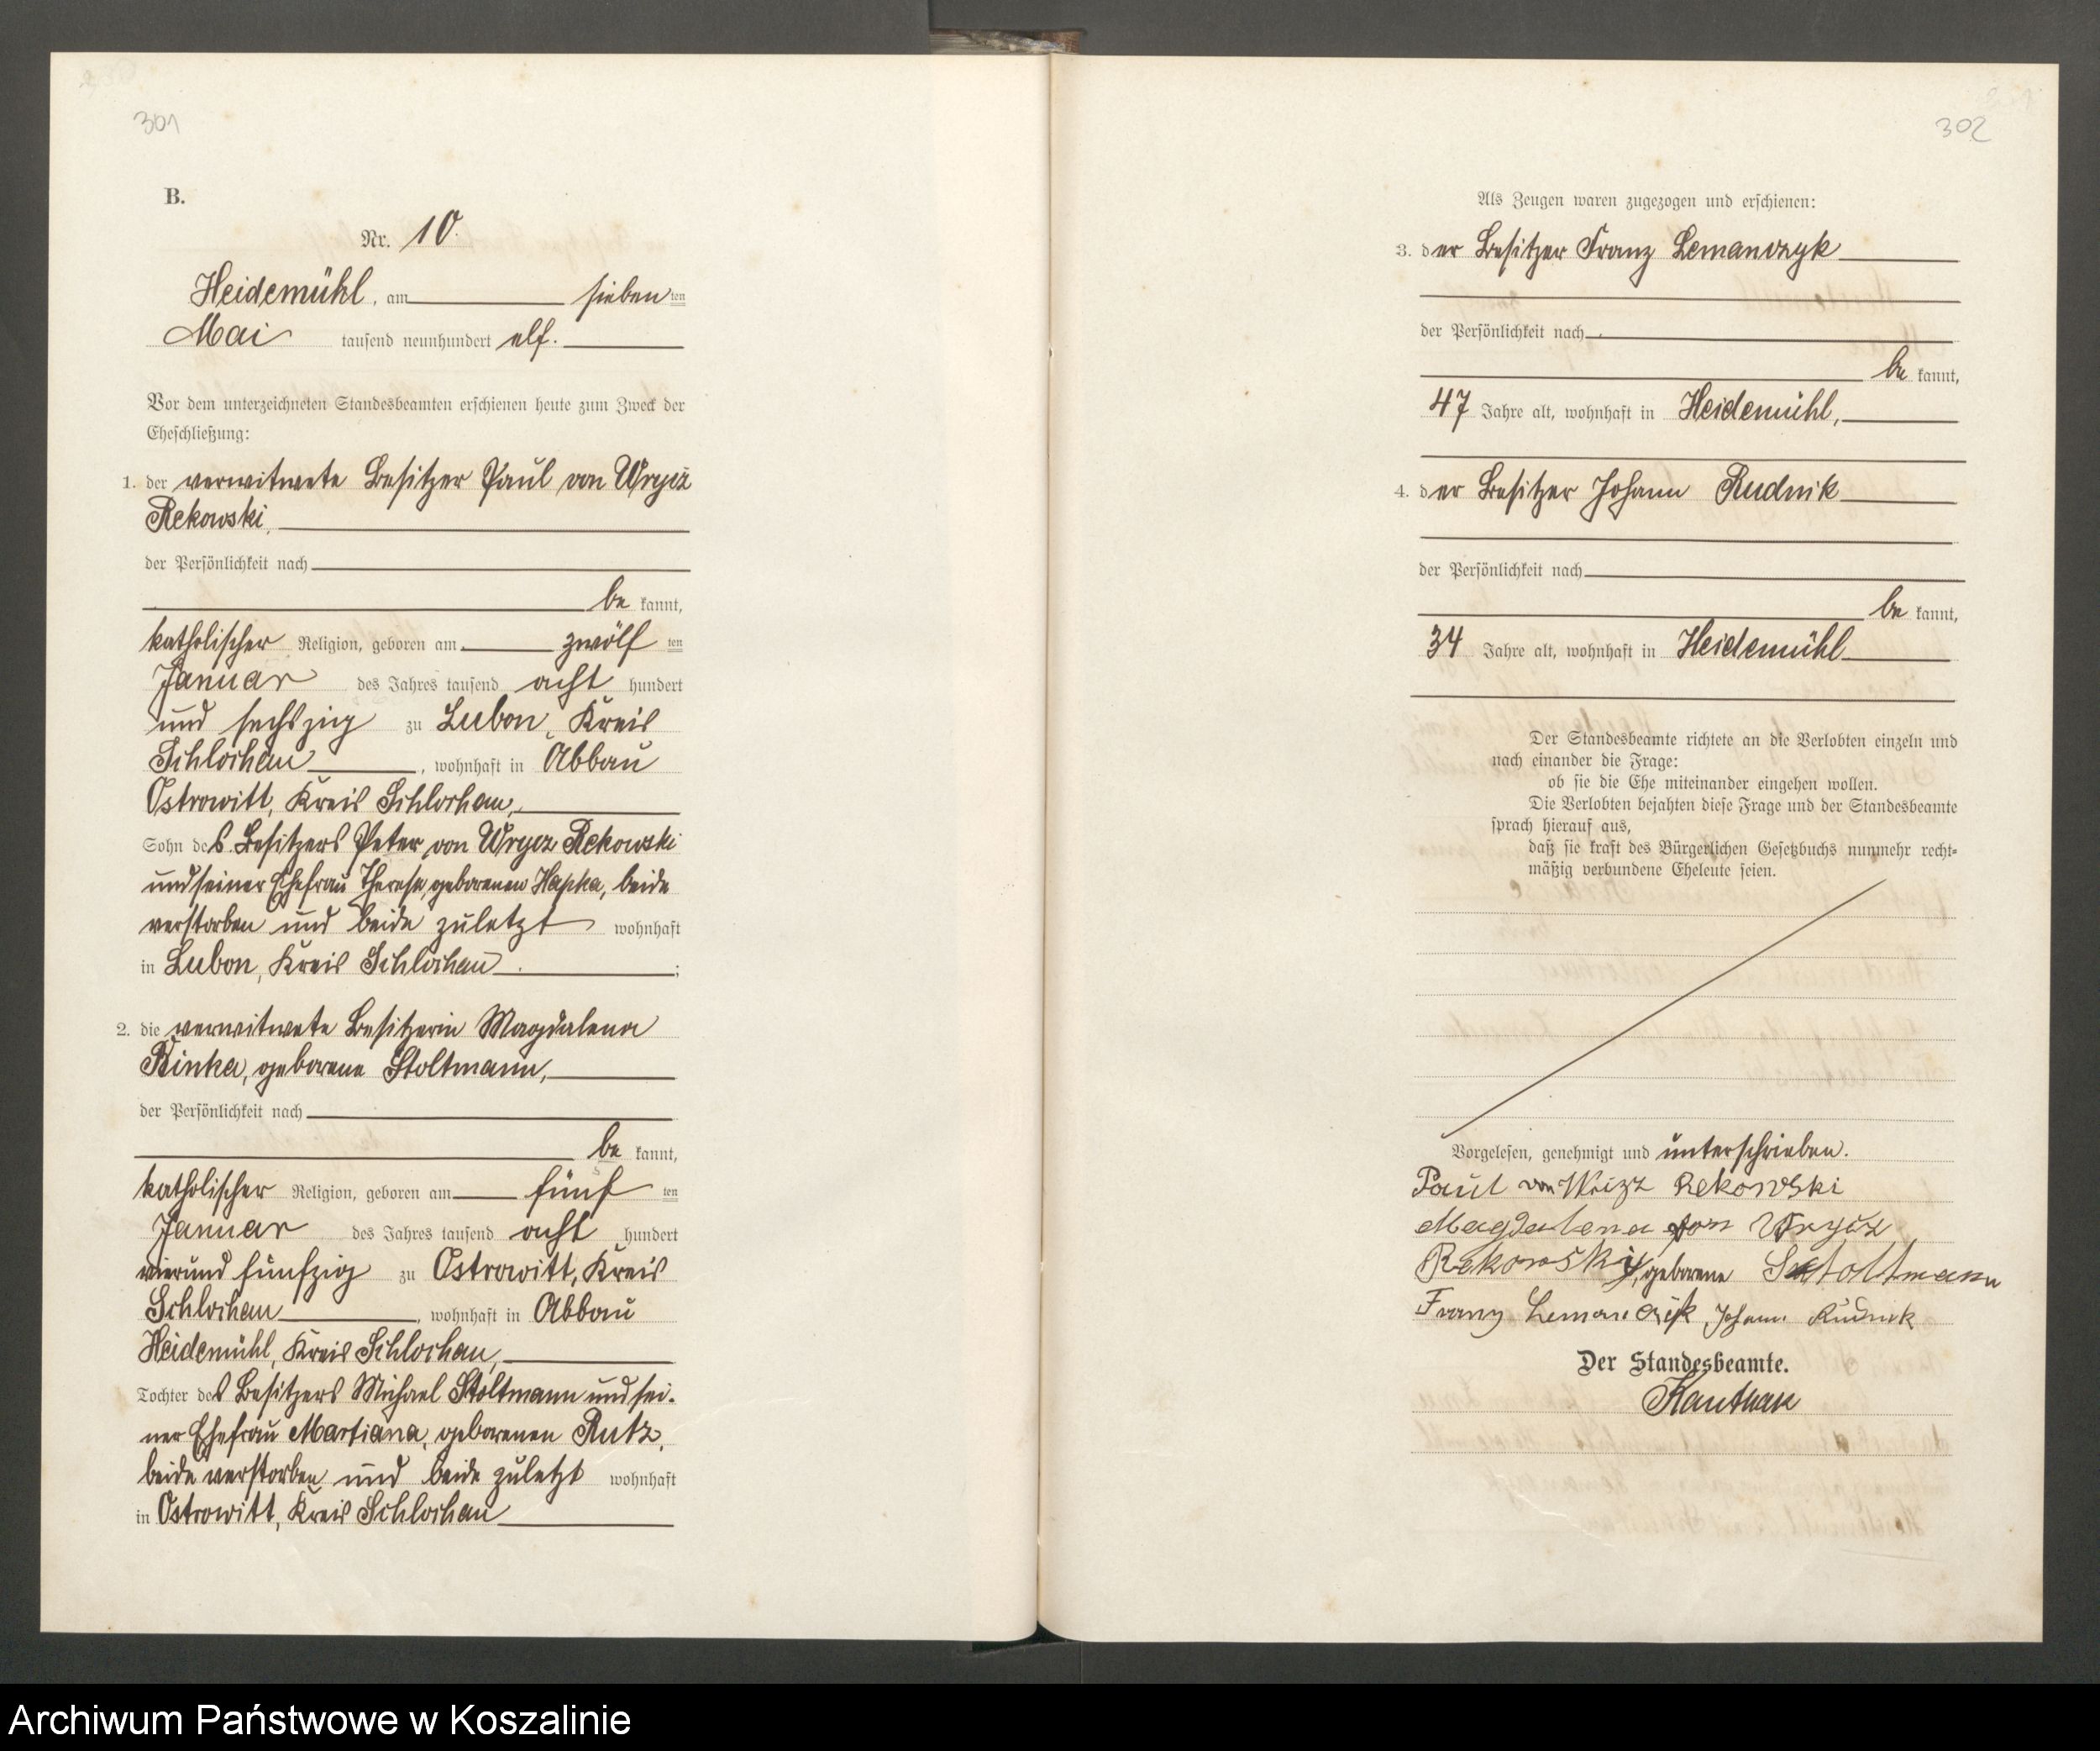 301
B.
Nr. 10.
Heidemühl, am sieben ten
Mai tausend neunhundert elf.
Vor dem unterzeichneten Standesbeamten erschienen heute zum Zweck der
Eheschließung:
1. der verwitwete Besitzer Paul von Wrycz
Rekowski,
der Persönlichkeit nach
be kannt,
katholischer Religion, geboren am zwölf ten
Januar des Jahres tausend acht hundert
und sechszig zu Lubon, Kreis
Schlochau, wohnhaft in Abbau
Ostrowitt, Kreis Schlochau,
Sohn des Besitzers Peter von Wrycz Rekowski
und seiner Ehefrau Therese, geborenen Hapka, beide
verstorben und beide zuletzt wohnhaft
in Lubon, Kreis Schlochau;
2. die verwitwete Besitzerin Magdalena
Binka, geborene Stoltmann,
der Persönlichkeit nach
be kannt,
katholischer Religion, geboren am fünf ten
Januar des Jahres tausend acht hundert
vierund fünfzig zu Ostrowitt, Kreis
Schlochau, wohnhaft in Abbau
Heidemühl, Kreis Schlochau,
Tochter des Besitzers Michael Stoltmann und sei-
ner Ehefrau Martiana, geborenen Rutz,
beide verstorben und beide zuletzt wohnhaft
in Ostrowitt, Kreis Schlochau
302
Als Zeugen waren zugezogen und erschienen:
3. der Besitzer Franz Lemanczyk
der Persönlichkeit nach
be kannt,
47 Jahre alt, wohnhaft in Heidemühl,
4. der Besitzer Johann Rudnik
der Persönlichkeit nach
be kannt,
34 Jahre alt, wohnhaft in Heidemühl
Der Standesbeamte richtete an die Verlobten einzeln und
nach einander die Frage:
ob sie die Ehe miteinander eingehen wollen.
Die Verlobten bejahten diese Frage und der Standesbeamte
sprach hierauf aus,
daß sie kraft des Bürgerlichen Gesetzbuchs nunmehr recht-
mäßig verbundene Eheleute seien.
Vorgelesen, genehmigt und unterschrieben.
Paul von Rekowski
Magdalena von Wrycz
Rekowski, geborene Stoltmann
Franz Lemanczik Johann Rudnik
Der Standesbeamte.
Archiwum Państwowe w Koszalinie